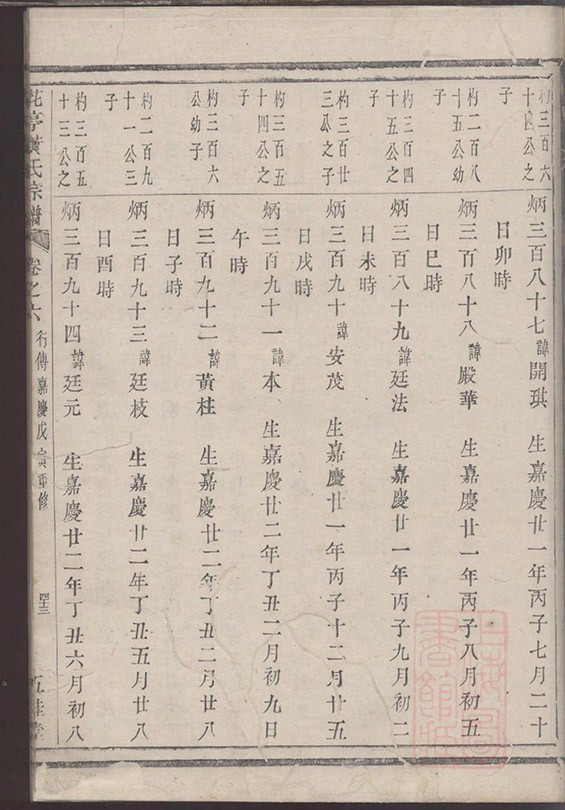 杓三百六
十四公之
子
炳三百八十七諱開琪　生嘉慶廿一年丙子七月二十
日卯時
杓二百八
十五公幼
子
炳三百八十八諱殿華　生嘉慶廿一年丙子八月初五
日巳時
杓三百四
十五公之
子
炳三百八十九諱廷法　生嘉慶廿一年丙子九月初二
日未時
杓三百廿
三公之子
炳三百九十諱安茂　生嘉慶廿一年丙子十二月廿五
日戌時
杓三百五
十四公之
子
炳三百九十一諱本　生嘉慶廿二年丁丑二月初九日
午時
杓三百六
公幼子
炳三百九十二諱黃桂　生嘉慶廿二年丁丑二月廿八
日子時
杓二百九
十一公三
子
炳三百九十三諱廷枝　生嘉慶廿二年丁丑五月廿八
日酉時
杓三百五
十三公之
炳三百九十四諱廷元　生嘉慶廿二年丁丑六月初八
花亭黃氏宗譜　卷之六　行傳嘉慶戊寅重修　四十三　五桂堂
上海圖書館藏